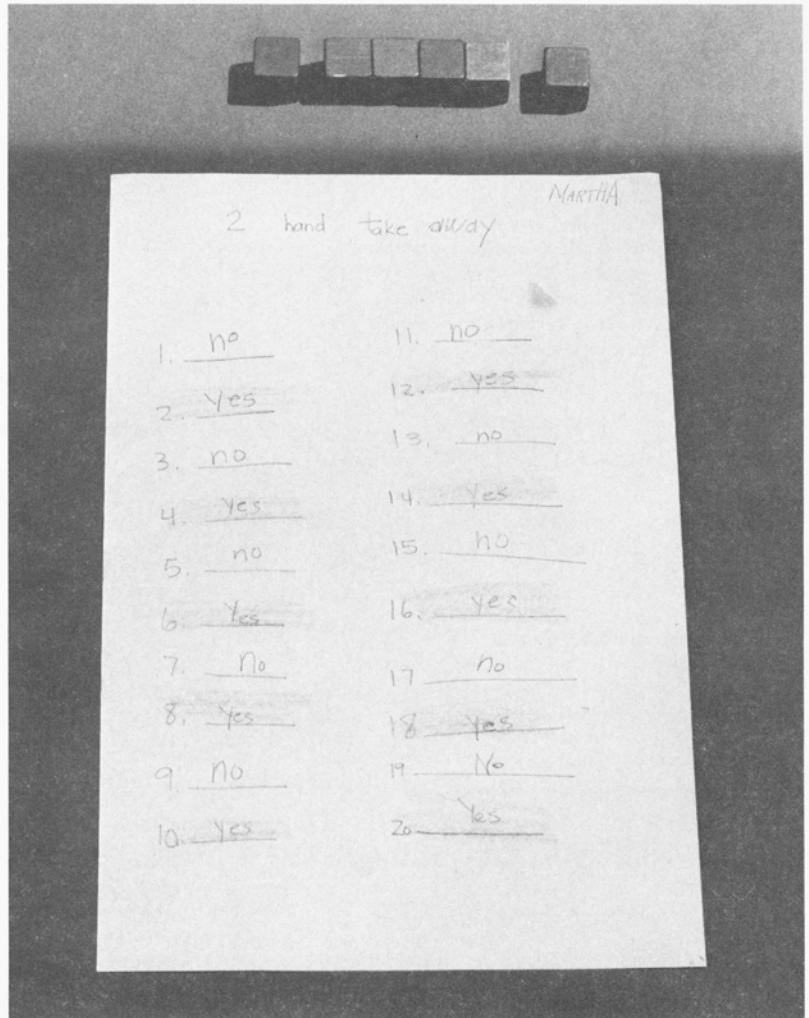 MARTHA
2 hand take away
1. no
2. Yes
3. no
4. Yes
5. no
6. Yes
7. no
8. Yes
9. no
10. Yes
11. no
12. yes
13. no
14. Yes
15. no
16. yes
17 no
18 yes
19 No
20 Yes